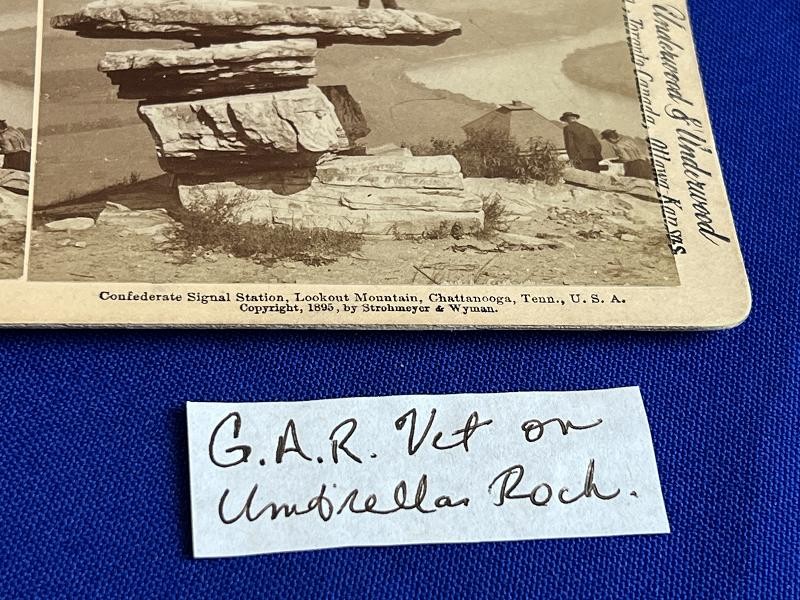 Underwood & Underwood
Toronto Canada, Ottawa Kansas
Confederate Signal Station, Lookout Mountain, Chattanooga, Tenn., U. S. A.
Copyright, 1895, by Strohmeyer & Wyman.
G.A.R. Vet on
Umbrella Rock.